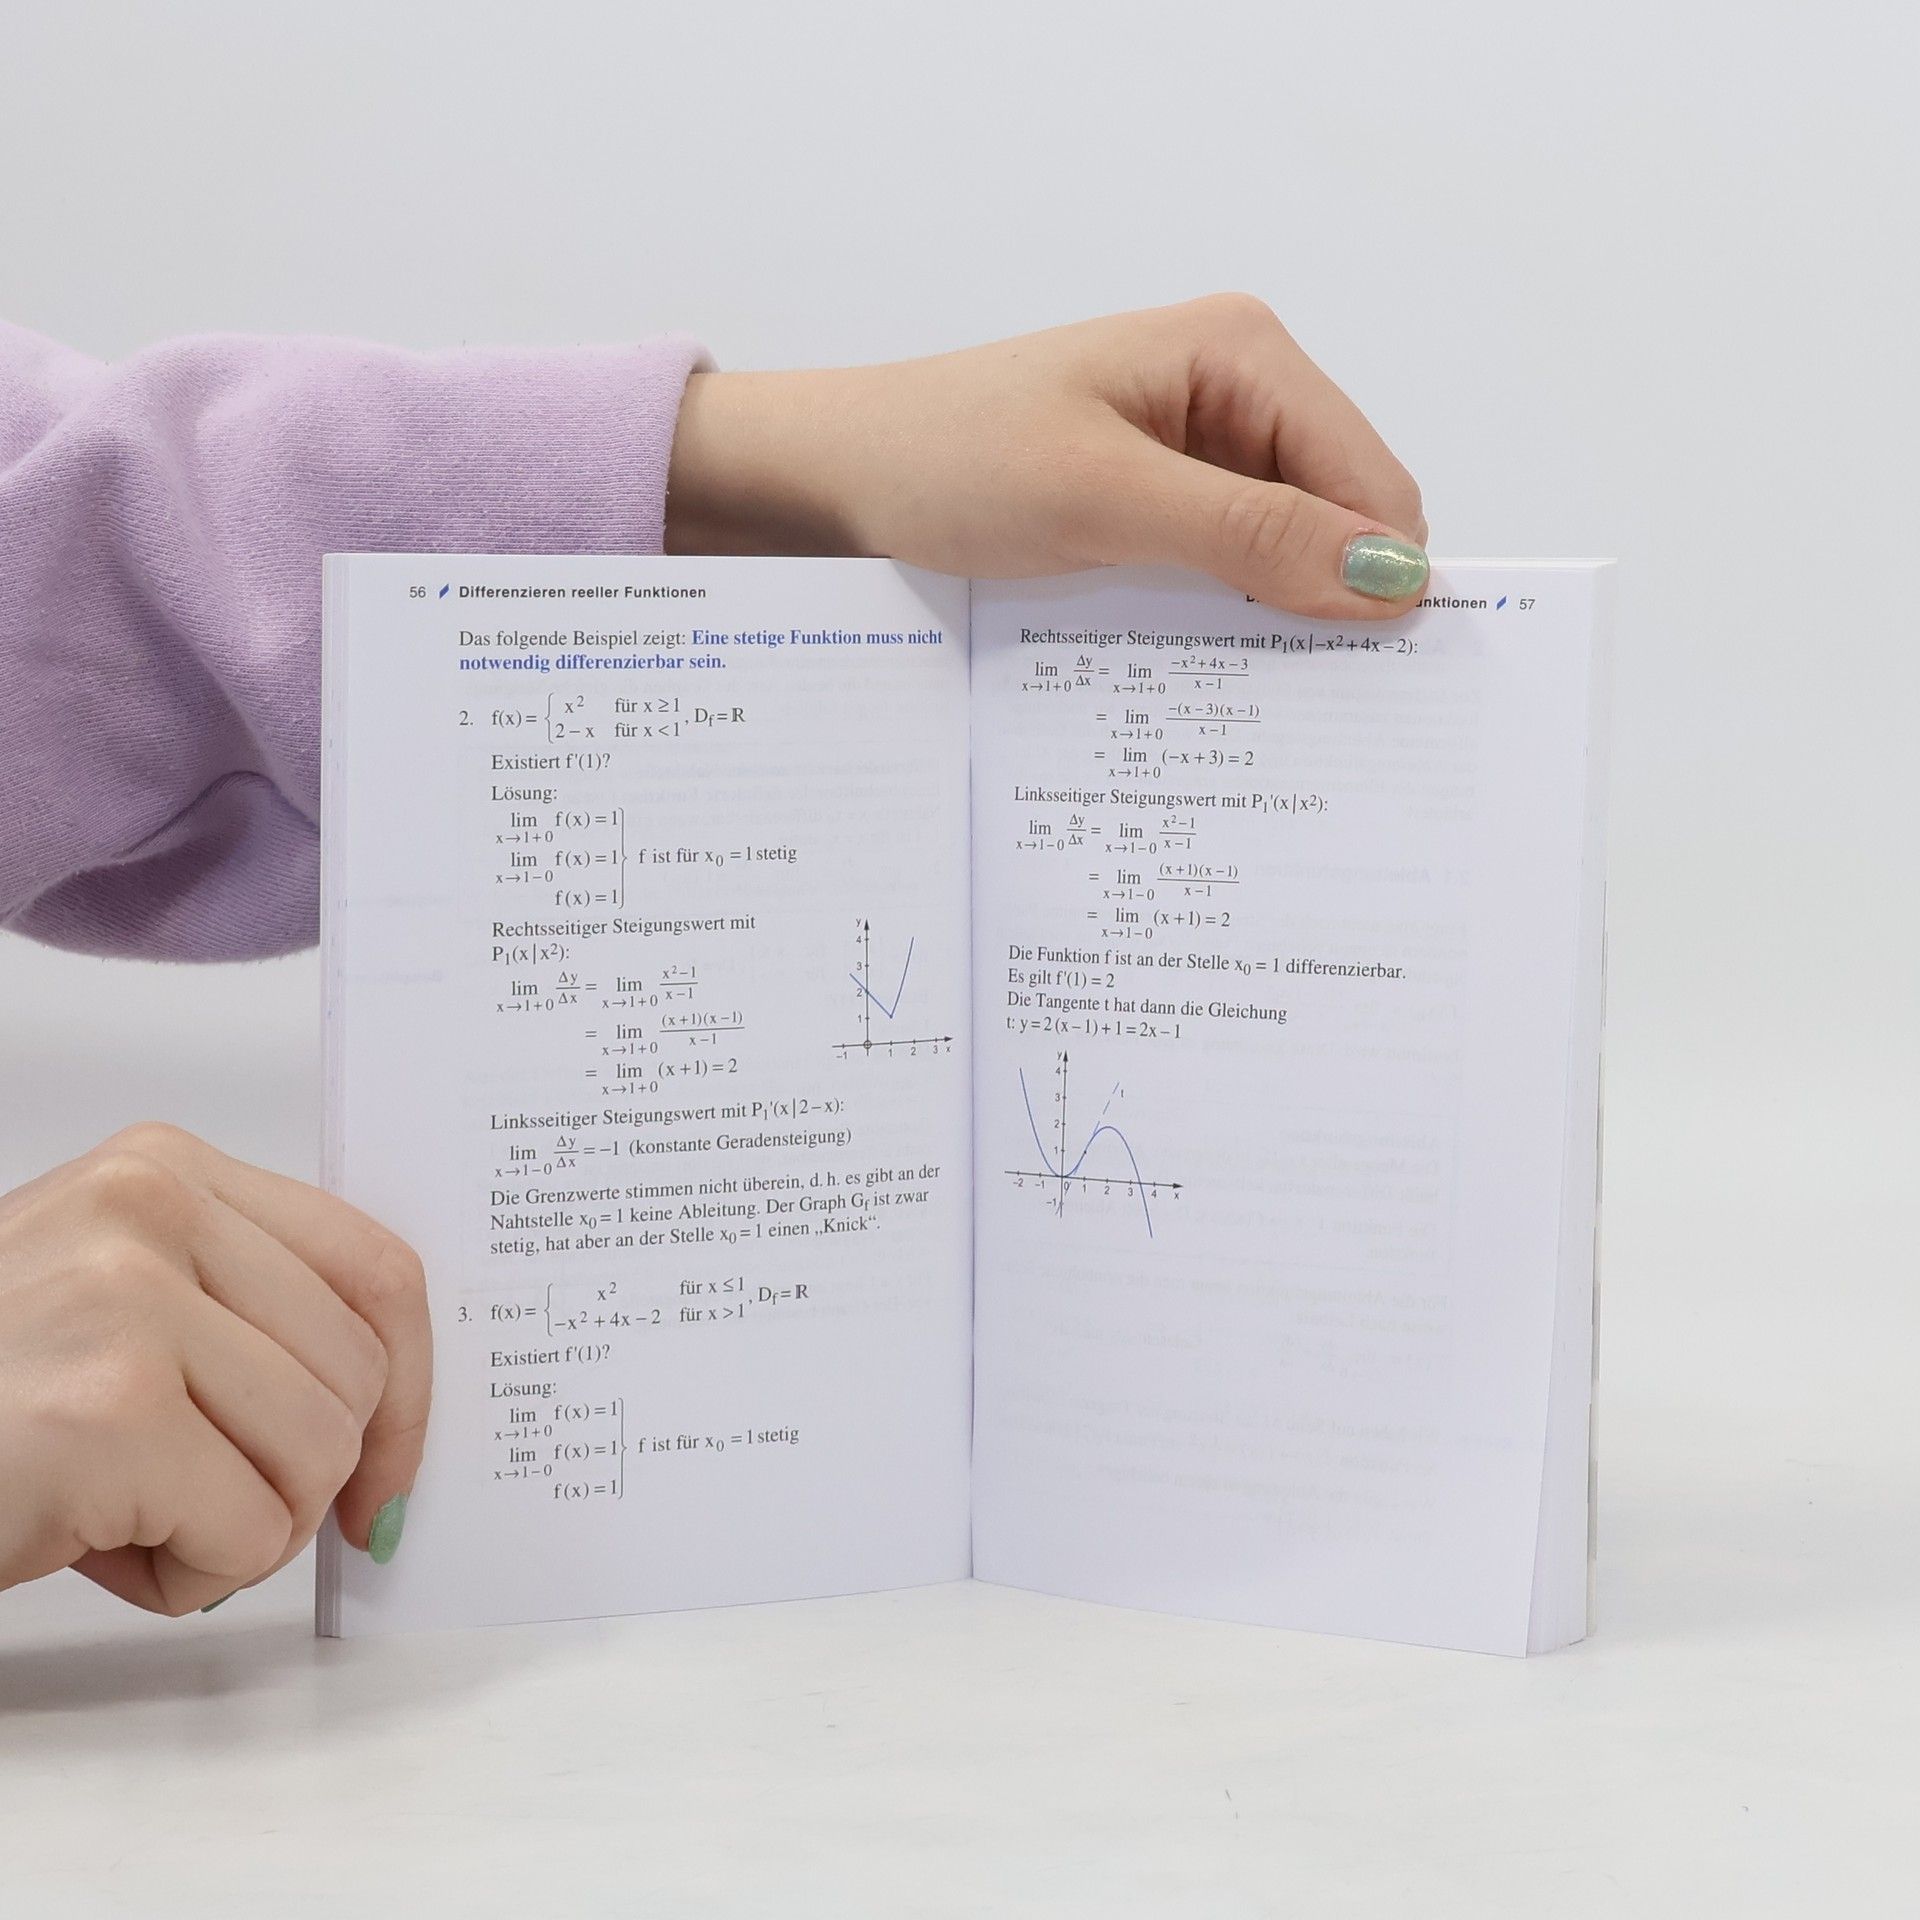 56 Differenzieren reeller Funktionen
Das folgende Beispiel zeigt: Eine stetige Funktion muss nicht
notwendig differenzierbar sein.
2. f(x) = { x² für x ≥ 1
2 – x für x < 1 , D_f = ℝ
Existiert f'(1)?
Lösung:
lim x→1+0 f(x) = 1
lim x→1–0 f(x) = 1 } f ist für x₀ = 1 stetig
f(x) = 1
Rechtsseitiger Steigungswert mit
P₁(x | x²):
lim x→1+0 Δy/Δx = lim x→1+0 (x²–1)/(x–1)
= lim x→1+0 (x+1)(x–1)/(x–1)
= lim x→1+0 (x+1) = 2
y
4
3
2
1
–1 1 2 3 x
Linksseitiger Steigungswert mit P₁'(x | 2–x):
lim x→1–0 Δy/Δx = –1 (konstante Geradensteigung)
Die Grenzwerte stimmen nicht überein, d. h. es gibt an der
Nahtstelle x₀ = 1 keine Ableitung. Der Graph G_f ist zwar
stetig, hat aber an der Stelle x₀ = 1 einen „Knick“.
3. f(x) = { x² für x ≤ 1
–x² + 4x – 2 für x > 1 , D_f = ℝ
Existiert f'(1)?
Lösung:
lim x→1+0 f(x) = 1
lim x→1–0 f(x) = 1 } f ist für x₀ = 1 stetig
f(x) = 1
nktionen 57
Rechtsseitiger Steigungswert mit P₁(x | –x² + 4x – 2):
lim x→1+0 Δy/Δx = lim x→1+0 (–x² + 4x – 3)/(x–1)
= lim x→1+0 –(x–3)(x–1)/(x–1)
= lim x→1+0 (–x+3) = 2
Linksseitiger Steigungswert mit P₁'(x | x²):
lim x→1–0 Δy/Δx = lim x→1–0 (x²–1)/(x–1)
= lim x→1–0 (x+1)(x–1)/(x–1)
= lim x→1–0 (x+1) = 2
Die Funktion f ist an der Stelle x₀ = 1 differenzierbar.
Es gilt f'(1) = 2
Die Tangente t hat dann die Gleichung
t: y = 2(x–1) + 1 = 2x – 1
y
4
3
2
1
t
–2 –1 0 1 2 3 4 x
–1